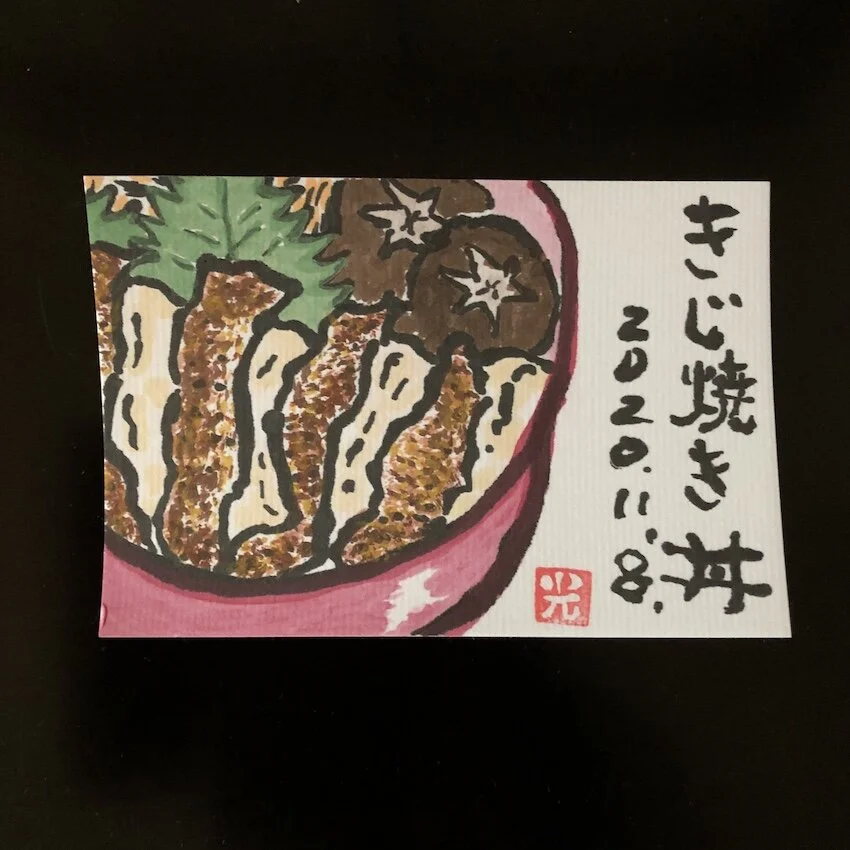 きじ焼き丼
2020.11.8.
光